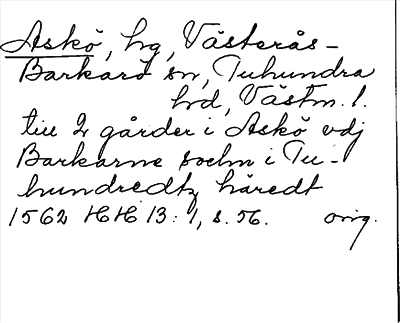 Askö, hg, Västerås-
Barkarö sn, Tuhundra
hrd, Västm. l.
till 2 gårder i Askö vdj
Barkarne sochn i Tu-
hundredtz häredt
1562 HH 13:1, s. 56. orig.